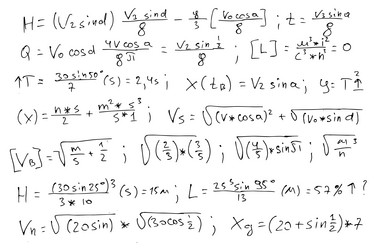 H = (V₂ sind) V₂ sind/8 − y/3 [V₀cosa/8] ; t = V₂sina/8
Q = V₀cosd 4Vcosa/8π = V₂sin½/8 ; [L] = м³*i²/c³*h³ = 0
↑T = 30sin50°/7 (s) = 2,4s ; X(tB) = V₂sina ; y = T²↑
(x) = h*s/2 + m²*s³/s*1 ; Vs = √(V*cosa)² + √(V₀*sind)
[VB] = √m/s + 1/2 ; √(2/3)*(3/5) ; √(4/5)*sinπ ; √м³/h
H = (30sin25°)³/3*10 (s) = 15м ; L = 25³sin95°/13 (м) = 57% ↑ ?
Vn = √(20sin) * √(30cos½) ; Xg = (20+sin½)*7